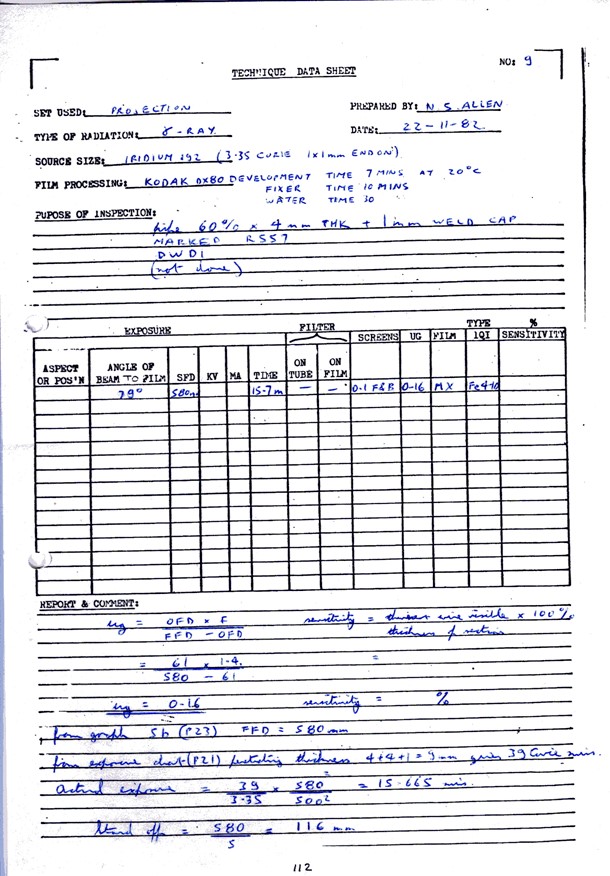 NO: 9
TECHNIQUE DATA SHEET
SET USED: PROJECTION
PREPARED BY: N. S. ALLEN
TYPE OF RADIATION: γ - RAY
DATE: 22-11-82
SOURCE SIZE: IRIDIUM 192 (3.35 CURIE 1x1mm END ON)
FILM PROCESSING: KODAK DX80 DEVELOPMENT TIME 7 MINS AT 20°C
FIXER TIME 10 MINS
WATER TIME 30
PUPOSE OF INSPECTION:
pipe 60 % x 4 mm THK + 1 mm WELD CAP
MARKED RSS7
DWDI
(not done)
EXPOSURE FILTER TYPE %
SCREENS UG FILM IQI SENSITIVITY
ASPECT OR POS'N ANGLE OF BEAM TO FILM SFD KV MA TIME ON TUBE ON FILM
79° 580m 15.7m - - 0.1 F&B 0.16 MX Fe410
REPORT & COMMENT:
ug = OFD x F / FFD - OFD sensitivity = thinnest wire visible x 100% / thickness of section
= 61 x 1.4 / 580 - 61 =
ug = 0.16 sensitivity = %
from graph 5h (P23) FFD = 580 mm
from exposure chart (P21) penetrating thickness 4+4+1 = 9mm gives 39 Curie mins.
Actual exposure = 39 / 3.35 x 580² / 500² = 15.665 min.
Stand off = 580 / 5 = 116 mm
112